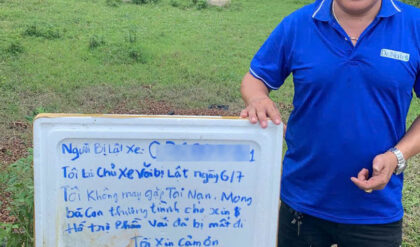 Người Bị Lật Xe:
Tôi Là Chủ Xe Vải bị Lật ngày 6/7
Tôi Không may gặp Tai Nạn. Mong
bà Con thương tình cho xin
Hổ trợ Phần Vải đã bị mất đi
Tôi Xin Cảm Ơn